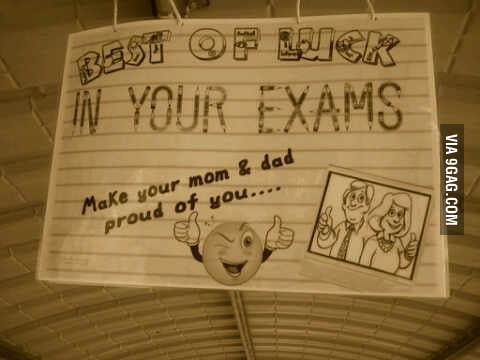 BEST OF LUCK
IN YOUR EXAMS
Make your mom & dad
proud of you....
VIA 9GAG.COM